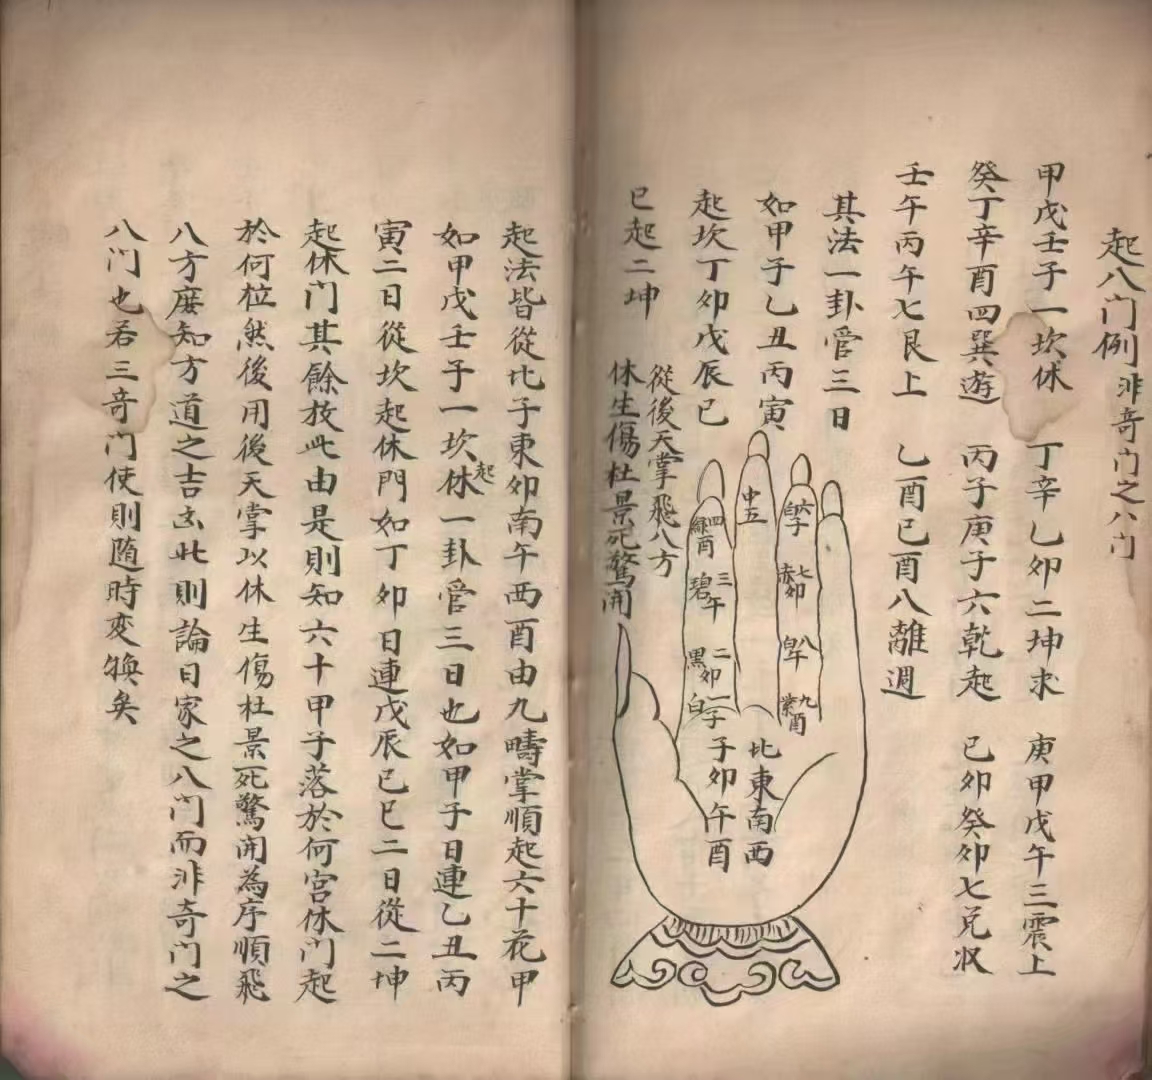 起八门例 非奇门之八门
甲戊壬子一坎休 丁辛乙卯二坤求 庚甲戊午三震上
癸丁辛酉四巽遊 丙子庚子六乾起 己卯癸卯七兑收
壬午丙午七艮上 乙酉已酉八離週
其法一卦管三日
如甲子乙丑丙寅
起坎丁卯戊辰已
巳起二坤
從後天掌飛八方
休生傷杜景死驚開
中五
四綠酉
三碧午
二黑卯
一白子
六白子
七赤卯
八白午
九紫酉
北東南西
子卯午酉
起法皆從北子東卯南午西酉由九疇掌順起六十花甲
如甲戊壬子一坎休起一卦管三日也如甲子日連乙丑丙
寅二日從坎起休門如丁卯日連戊辰已巳二日從二坤
起休门其餘放此由是則知六十甲子落於何宫休门起
於何位然後用後天掌以休生傷杜景死驚開為序順飛
八方庶知方道之吉凶此則論日家之八门而非奇门之
八门也若三奇门使則随時変換矣